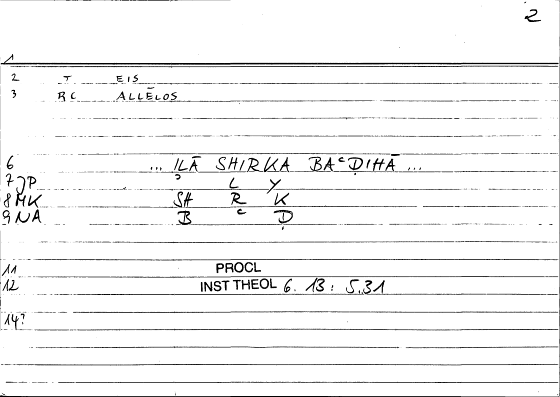 2
1
2 T EIS
3 RC ALLĒLOS
6 ... ILĀ SHIRKA BAᶜḌIHĀ ...
7 JP ʾ L Y
8 MK SH R K
9 NA B ᶜ Ḍ
11 PROCL
12 INST THEOL 6. 13 : 5.31
14?